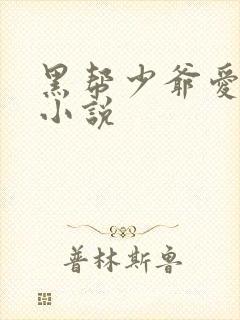 黑帮少爷愛
小説
普林斯鲁